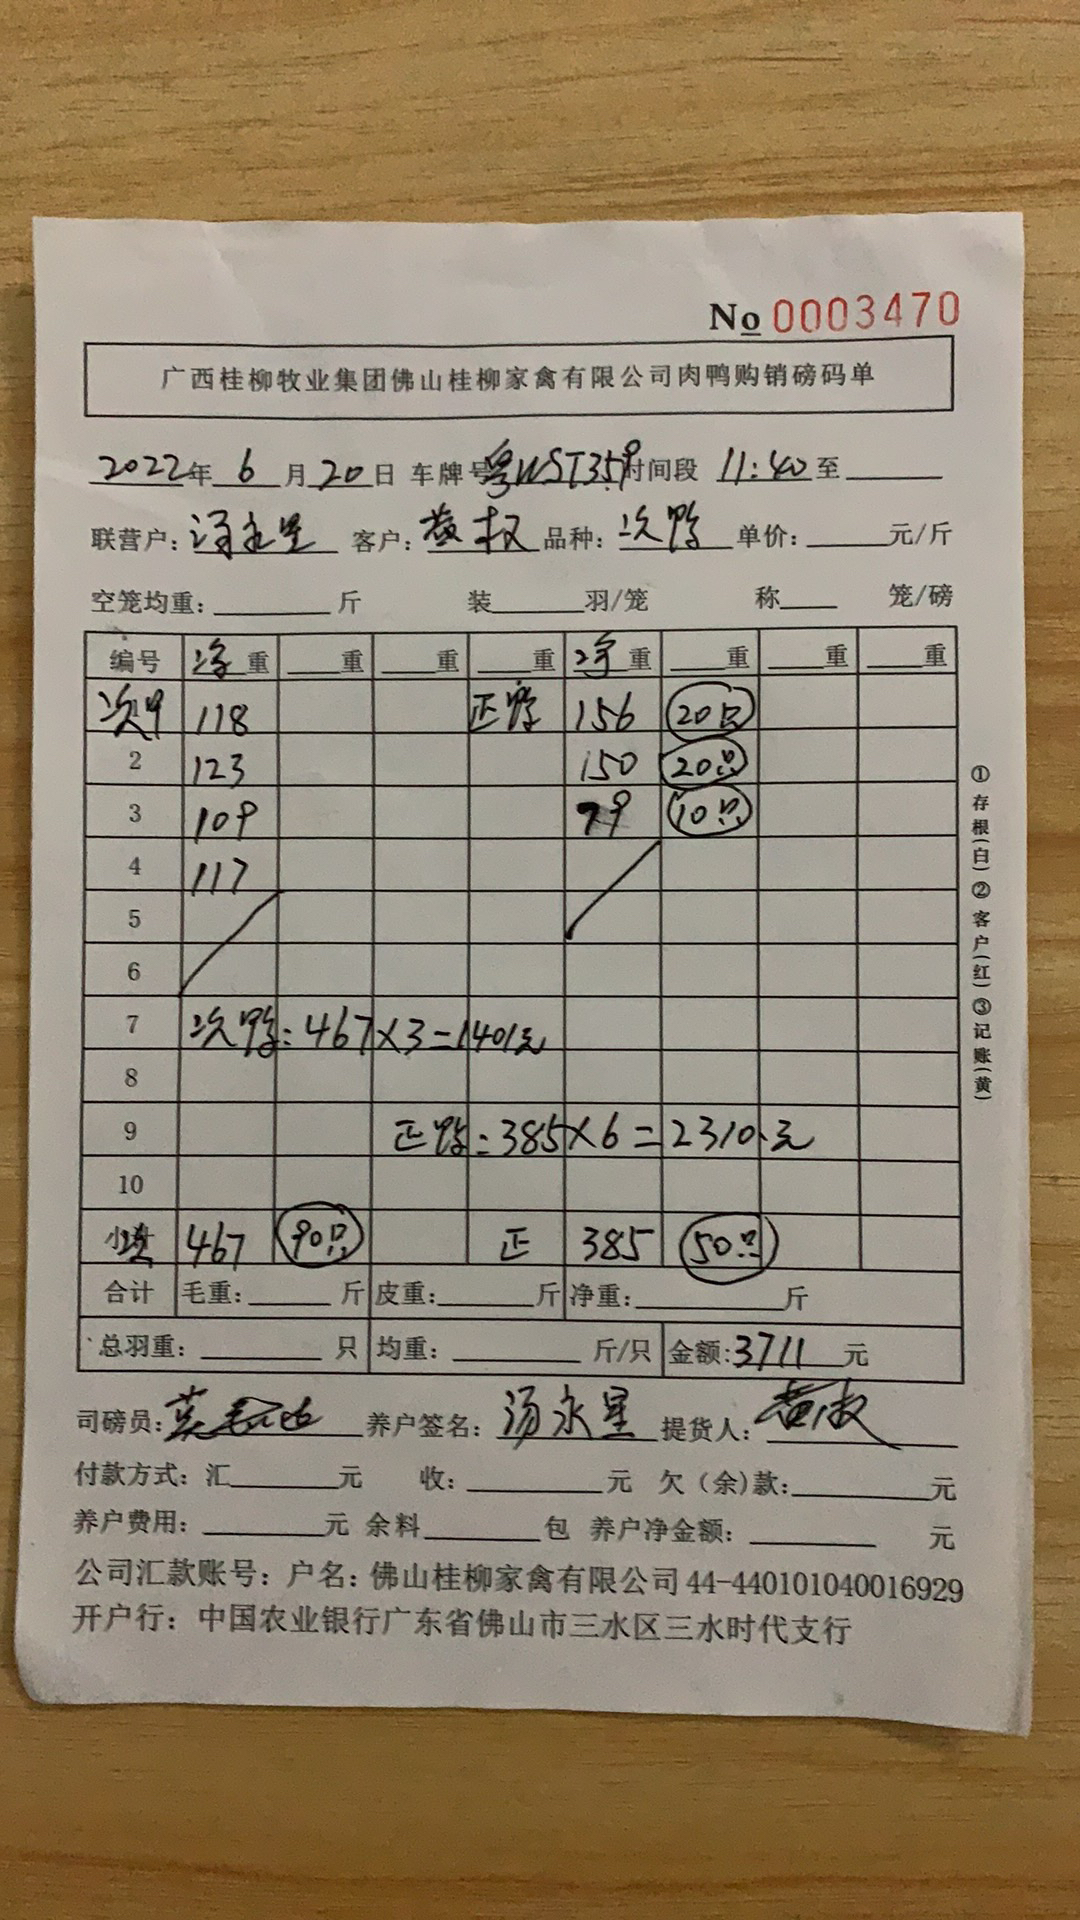 No 0003470
广西桂柳牧业集团佛山桂柳家禽有限公司肉鸭购销磅码单
2022年 6 月 20 日 车牌号粤WST359时间段 11:40 至
联营户: 汤永星 客户: 黄权 品种: 次鸭 单价: 元/斤
空笼均重: 斤 装 羽/笼 称 笼/磅
编号 净重 重 重 重 净重 重 重 重
次鸭 118 正鸭 156 20只
2 123 150 20只
3 109 79 10只
4 117
5
6
7 次鸭: 467×3=1401元
8
9 正鸭: 385×6=2310.元
10
小 次 467 90只 正 385 50只
合计 毛重: 斤 皮重: 斤 净重: 斤
总羽重: 只 均重: 斤/只 金额: 3711 元
司磅员: 养户签名: 汤永星 提货人: 黄权
付款方式: 汇 元 收: 元 欠(余)款: 元
养户费用: 元 余料 包 养户净金额: 元
公司汇款账号: 户名: 佛山桂柳家禽有限公司 44-440101040016929
开户行: 中国农业银行广东省佛山市三水区三水时代支行
①存根(白)②客户(红)③记账(黄)